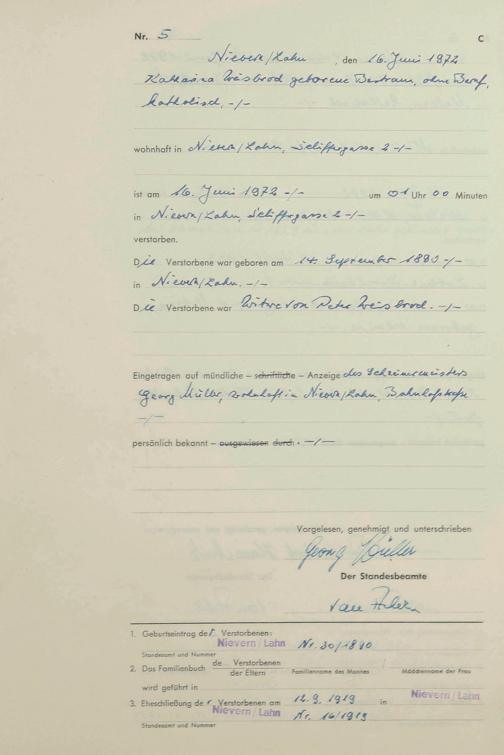 Nr. 5 C
Nievern/Lahn, den 16. Juni 1972
Katharina Weisbrod geborene Bertram, ohne Beruf,
katholisch, -/-
wohnhaft in Nievern/Lahn, Schiffergasse 2 -/-
ist am 16. Juni 1972 -/- um 01 Uhr 00 Minuten
in Nievern/Lahn, Schiffergasse 2 -/-
verstorben.
Die Verstorbene war geboren am 14. September 1890 -/-
in Nievern/Lahn. -/-
Die Verstorbene war Witwe von Peter Weisbrod. -/-
Eingetragen auf mündliche – schriftliche – Anzeige des Schreinermeisters
Georg Müller, wohnhaft in Nievern/Lahn, Bahnhofstraße
-/-
persönlich bekannt – ausgewiesen durch. -/-
Vorgelesen, genehmigt und unterschrieben
Georg Müller
Der Standesbeamte
1. Geburtseintrag der Verstorbenen:
Nievern/Lahn Nr. 30/1890
Standesamt und Nummer
2. Das Familienbuch de Verstorbenen
der Eltern Familienname des Mannes Mädchenname der Frau
wird geführt in
3. Eheschließung der Verstorbenen am 12.9.1919 in Nievern/Lahn
Nievern/Lahn Nr. 16/1919
Standesamt und Nummer